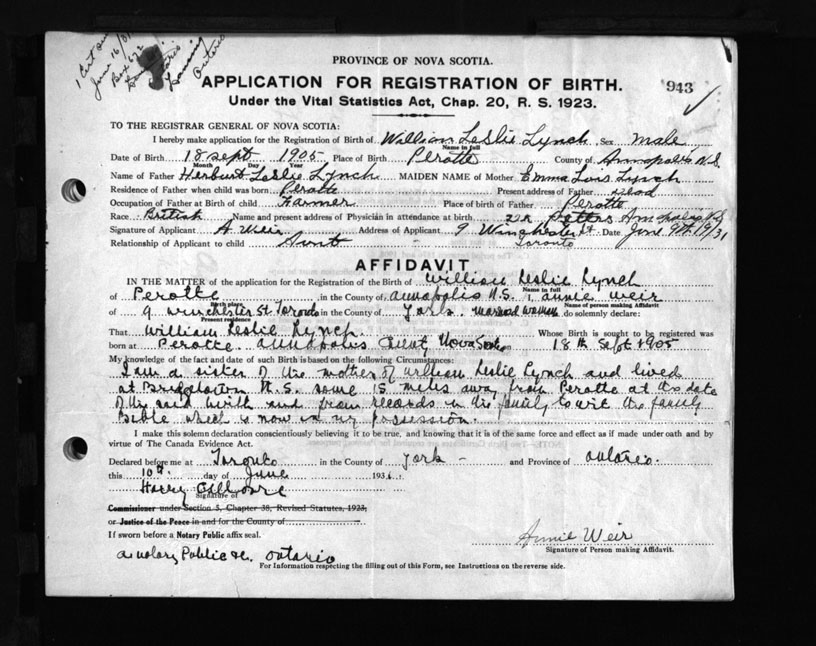 1 Cert
June 16/31
Box 622
Ontario
PROVINCE OF NOVA SCOTIA.
APPLICATION FOR REGISTRATION OF BIRTH. 943
Under the Vital Statistics Act, Chap. 20, R. S. 1923.
TO THE REGISTRAR GENERAL OF NOVA SCOTIA:
I hereby make application for the Registration of Birth of William Leslie Lynch Sex Male
Name in full
Date of Birth 18 Sept 1905 Place of Birth Perotte County of Annapolis N.S.
Month Day Year
Name of Father Herbert Leslie Lynch MAIDEN NAME of Mother Emma Lois Lynch
Residence of Father when child was born Perotte Present address of Father Dead
Occupation of Father at Birth of child Farmer Place of birth of Father Perotte
Race British Name and present address of Physician in attendance at birth Annapolis N.S
Signature of Applicant A. Weir Address of Applicant 9 Winchester St. Date June 9th 19/31
Relationship of Applicant to child Aunt Toronto
AFFIDAVIT
IN THE MATTER of the application for the Registration of the Birth of William Leslie Lynch
Name in full
of Perotte in the County of Annapolis N.S. I, Annie Weir
Birth place Name of person making Affidavit
of 9 Winchester St. Toronto in the County of York Married Woman do solemnly declare:
Present residence
That William Leslie Lynch Whose Birth is sought to be registered was
born at Perotte Annapolis County Nova Scotia 18th Sept 1905
My knowledge of the fact and date of such Birth is based on the following Circumstances:
I am a sister of the mother of William Leslie Lynch and lived
at Bridgetown N.S. some 15 miles away from Perotte at the date
of the said birth and from records in the family to wit the family
Bible which is now in my possession.
I make this solemn declaration conscientiously believing it to be true, and knowing that it is of the same force and effect as if made under oath and by
virtue of The Canada Evidence Act.
Declared before me at Toronto in the County of York and Province of Ontario.
this 10th day of June 1931.
Harry
Signature of
Commissioner under Section 5, Chapter 38, Revised Statutes, 1923,
or Justice of the Peace in and for the County of
If sworn before a Notary Public affix seal. Annie Weir
Signature of Person making Affidavit.
a Notary Public &c. Ontario
For Information respecting the filling out of this Form, see Instructions on the reverse side.